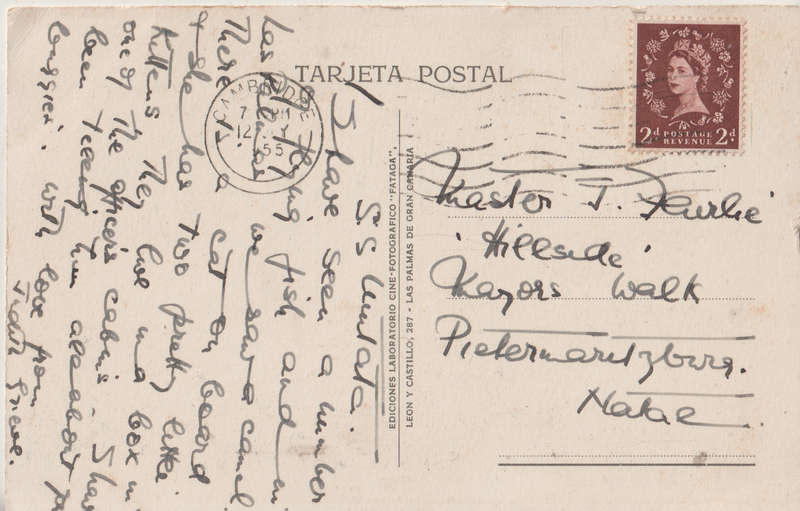 TARJETA POSTAL
2d POSTAGE REVENUE 2d
CAMBRIDGE
55
SS Umtata.
I have seen a number
of flying fish and in
Las Palmas we saw a camel.
There is a cat on board
& she has two pretty little
Kittens. They live in a box in
one of the officers cabins. I have
been telling him all about
with love from
EDICIONES LABORATORIO CINE-FOTOGRAFICO "FATAGA",
LEON Y CASTILLO, 287 - LAS PALMAS DE GRAN CANARIA
Master J.
'Hillside'
Mayors Walk
Pietermaritzburg.
Natal